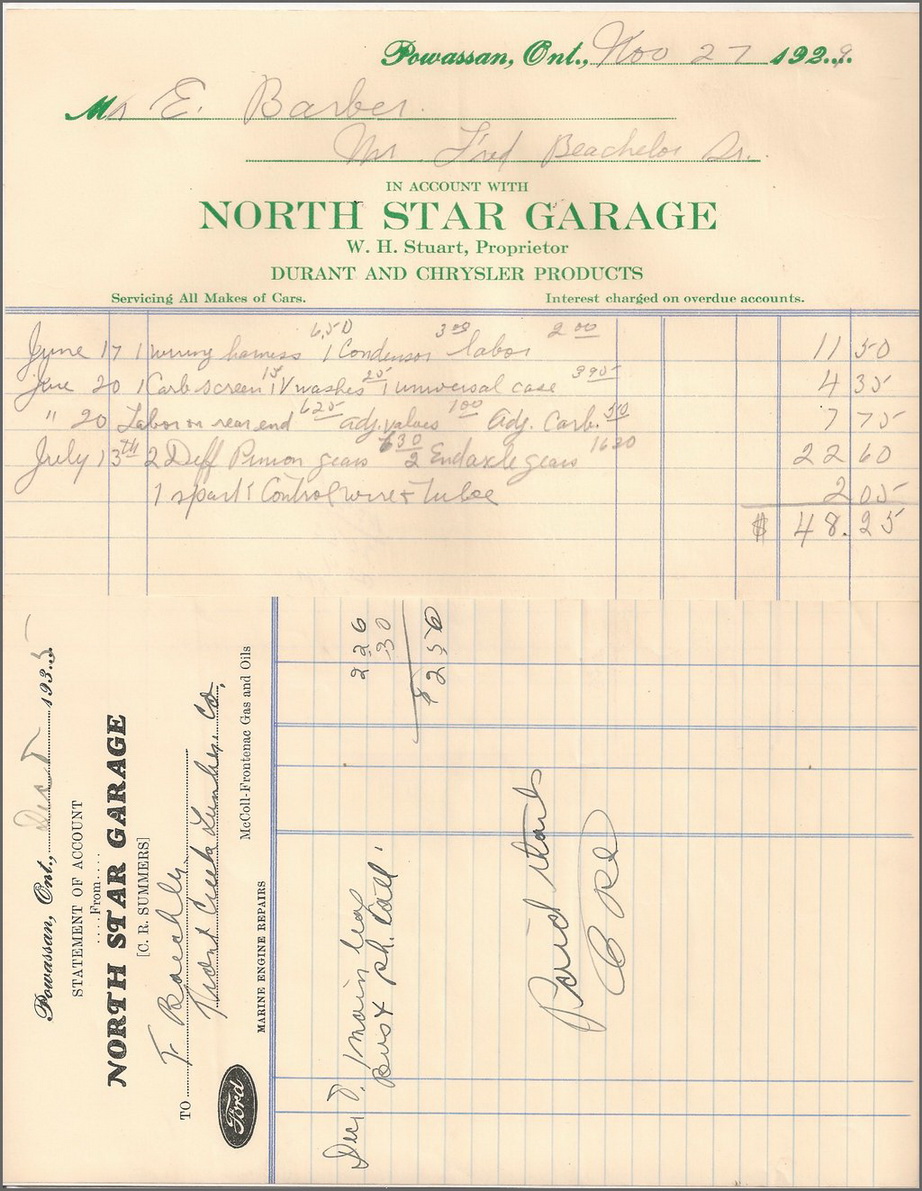 Powassan, Ont., Nov 27 1929.
Mr E. Barber.
Mr Fred Beachelor Sr.
IN ACCOUNT WITH
NORTH STAR GARAGE
W. H. Stuart, Proprietor
DURANT AND CHRYSLER PRODUCTS
Servicing All Makes of Cars. Interest charged on overdue accounts.
June 17 1 wiring harness 6.50 1 Condensor 3 00 labor 2 00 11 50
June 20 1 Carb screen 15 1 V washes 25 1 universal case 3 95 4 35
" 20 Labor on rear end 6 25 adj. valves 1 00 Adj. Carb. 50 7 75
July 13th 2 Diff Pinion gears 6 30 2 End axle gears 16 20 22 60
1 spart Control wire & Tube 2 05
$ 48.25
Powassan, Ont., Dec 193
STATEMENT OF ACCOUNT
....From....
NORTH STAR GARAGE
[C. R. SUMMERS]
TO F Beachly
Trout Creek Lumber Co.
Ford
MARINE ENGINE REPAIRS McColl-Frontenac Gas and Oils
Dec 1 main leaf 2 26
Bus & ph. Call. 30
$ 2 56
Paid